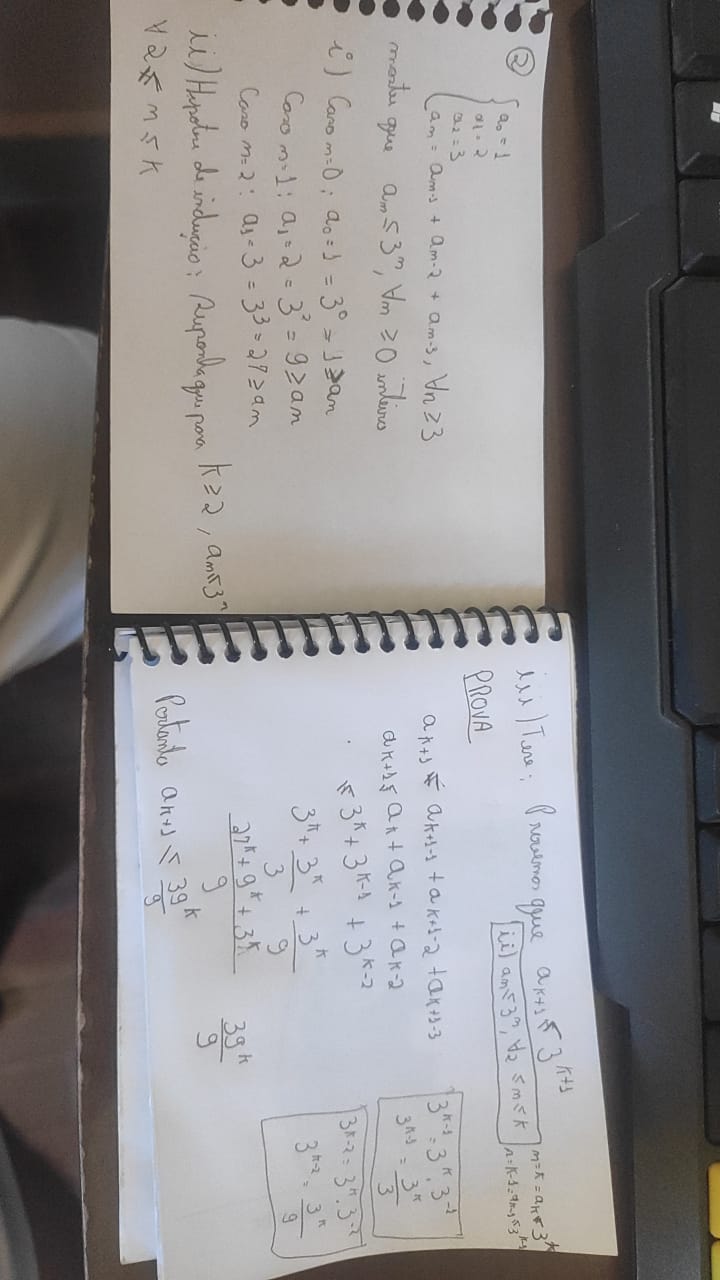 ②
a₀ = 1
a₁ = 2
a₂ = 3
aₙ = aₙ₋₁ + aₙ₋₂ + aₙ₋₃, ∀n ≥ 3
mostre que aₙ ≤ 3ⁿ, ∀n ≥ 0 inteiro
i) Caso n=0: a₀ = 1 = 3⁰ = 1 ≥ an
Caso n=1: a₁ = 2 = 3² = 9 ≥ an
Caso n=2: a₃ = 3 = 3³ = 27 ≥ an
ii) de indução: Suponha que para K ≥ 2, aₙ ≤ 3ⁿ
∀ 2 ≤ n ≤ K
iii) Tese: Provemos que aₖ₊₁ ≤ 3ᴷ⁺¹
ii) aₙ ≤ 3ⁿ, ∀2 ≤ n ≤ K
n = K = aₖ ≤ 3ᴷ
n = K-1 = aₖ₋₁ ≤ 3ᴷ⁻¹
PROVA
aₖ₊₁ ≤ aₖ₊₁₋₁ + aₖ₊₁₋₂ + aₖ₊₁₋₃
aₖ₊₁ ≤ aₖ + aₖ₋₁ + aₖ₋₂
≤ 3ᴷ + 3ᴷ⁻¹ + 3ᴷ⁻²
3ᴷ + 3ᴷ/3 + 3ᴷ/9
27ᴷ + 9ᴷ + 3ᴷ/9 39ᴷ/9
Portanto aₖ₊₁ ≤ 39ᴷ/9
3ᴷ⁻¹ = 3ᴷ . 3⁻¹
3ᴷ⁻¹ = 3ᴷ/3
3ᴷ⁻² = 3ᴷ . 3⁻²
3ᴷ⁻² = 3ᴷ/9